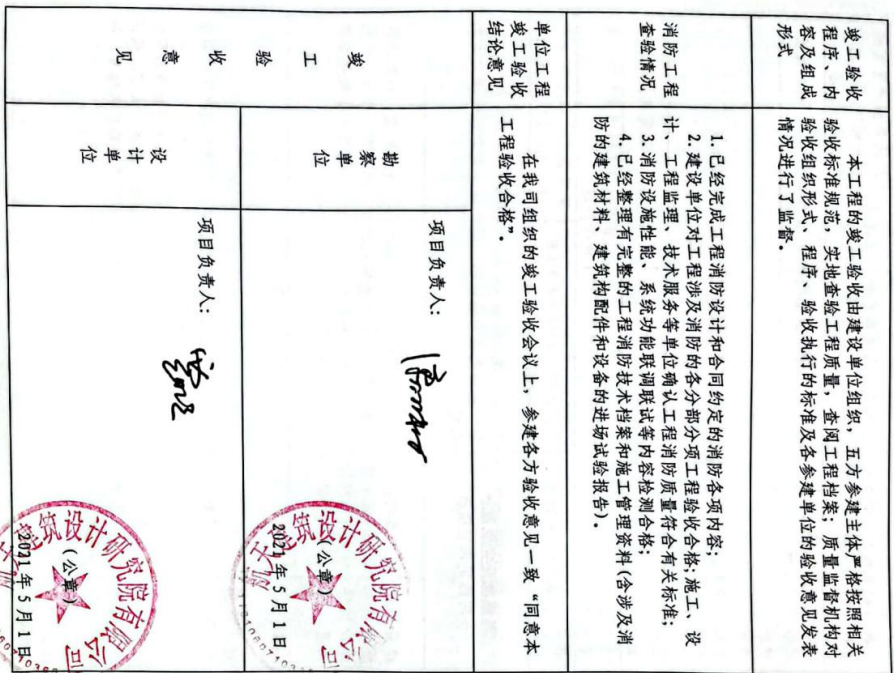 竣工验收
程序、内
容及组成
形式
本工程的竣工验收由建设单位组织，五方参建主体严格按照相关
验收标准规范，实地查验工程质量，查阅工程档案；质量监督机构对
验收组织形式、程序、验收执行的标准及各参建单位的验收意见发表
情况进行了监督。
消防工程
查验情况
1.已经完成工程消防设计和合同约定的消防各项内容；
2.建设单位对工程涉及消防的各分部分项工程验收合格;施工、设
计、工程监理、技术服务等单位确认工程消防质量符合有关标准；
3.消防设施性能、系统功能联调联试等内容检测合格；
4.已经整理有完整的工程消防技术档案和施工管理资料(含涉及消
防的建筑材料、建筑构配件和设备的进场试验报告)。
单位工程
竣工验收
结论意见
在我司组织的竣工验收会议上，参建各方验收意见一致“同意本
工程验收合格”。
竣工验收意见
勘察单位
项目负责人：
建筑设计研究院有限公司
（公章）
2021年5月1日
设计单位
项目负责人：
建筑设计研究院有限公司
（公章）
2021年5月1日